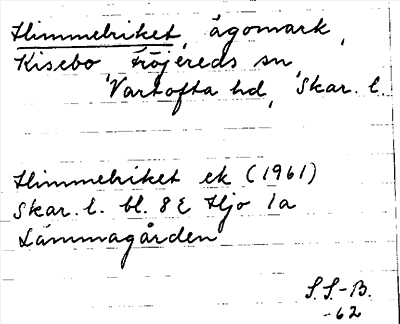 Himmelriket, ägomark,
Kisebo, Fröjereds sn,
Vartofta hd, Skar. l.
Himmelriket ek (1961)
Skar. l. bl. 8E Hjo 1a
Lämmagården
S.S.-B.
-62